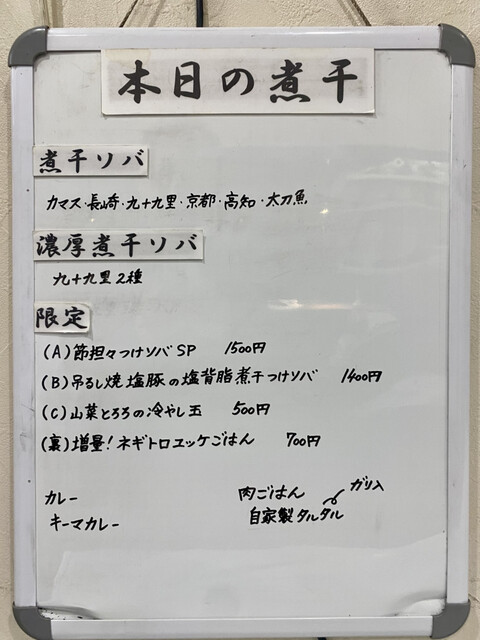 本日の煮干
煮干ソバ
カマス・長崎・九十九里・京都・高知・太刀魚
濃厚煮干ソバ
九十九里2種
限定
(A)節担々つけソバSP 1500円
(B)吊るし焼塩豚の塩背脂煮干つけソバ 1400円
(C)山菜とろろの冷やし玉 500円
(裏)増量!ネギトロエッケごはん 700円
カレー
キーマカレー
肉ごはん
ガリ入
自家製タルタル